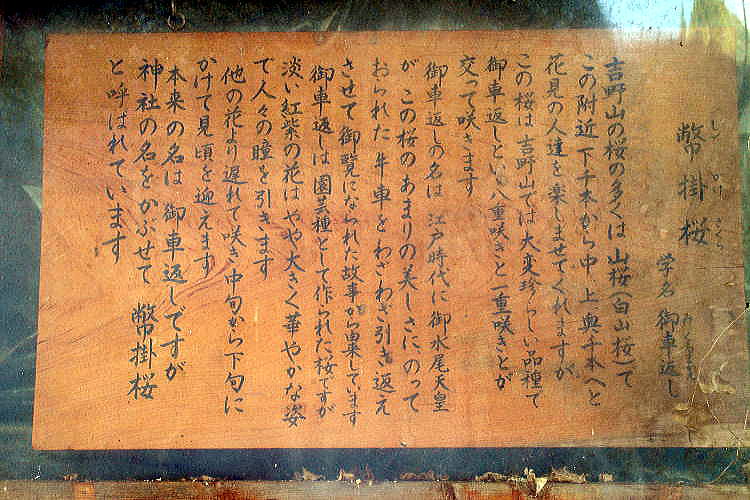 幣掛桜
しで かけ さくら
学名 御車返し
吉野山の桜の多くは 山桜(白山桜)で
この附近 下千本から中 上 奥千本へと
花見の人達を楽しませてくれますが
この桜は 吉野山では 大変珍らしい品種で
御車返しといい八重咲きと一重咲きとが
交って咲きます
御車返しの名は 江戸時代に御水尾天皇
が この桜のあまりの美しさにのって
おられた 牛車をわざわざ引き返え
させて 御覧になられた故事から由来しています
御車返しは 園芸種として作られた桜ですが
淡い紅紫の花はやや大きく華やかな姿
で人々の瞳を引きます
他の花より遅れて咲き中旬から下旬に
かけて見頃を迎えます
本来の名は 御車返しですが
神社の名をかぶせて 幣掛桜
と呼ばれています